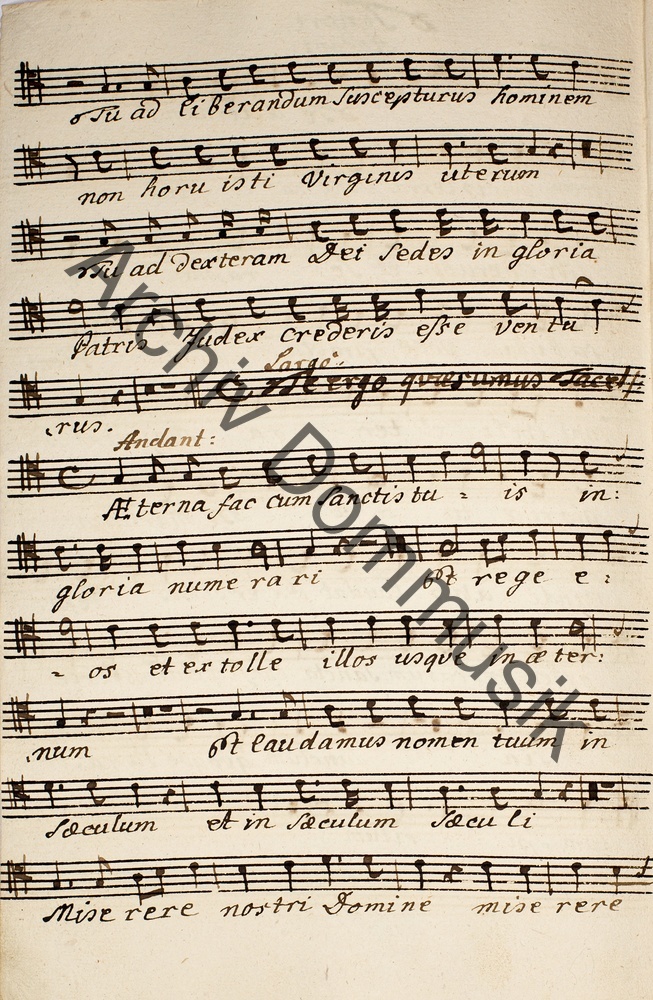 Tu ad liberandum suscepturus hominem
non horuisti Virginis uterum
Tu ad dexteram Dei Sedes in gloria
Patris Judex crederis esse ventu
Largo:
Te ergo quæsumus Tacet
rus.
Andant:
Æterna fac cum sanctis tu = is in:
gloria numerari Et rege e:
= os et extolle illos usque in æter:
num Et laudamus nomen tuum in
Sæculum et in Sæculum Sæculi
Miserere nostri Domine miserere
Archiv Dommusik